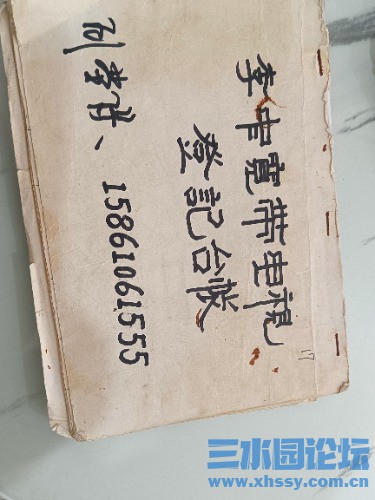 李中寬带电視
登記台帐
刘、15861061555
17
三水园论坛
www.xhssy.com.cn